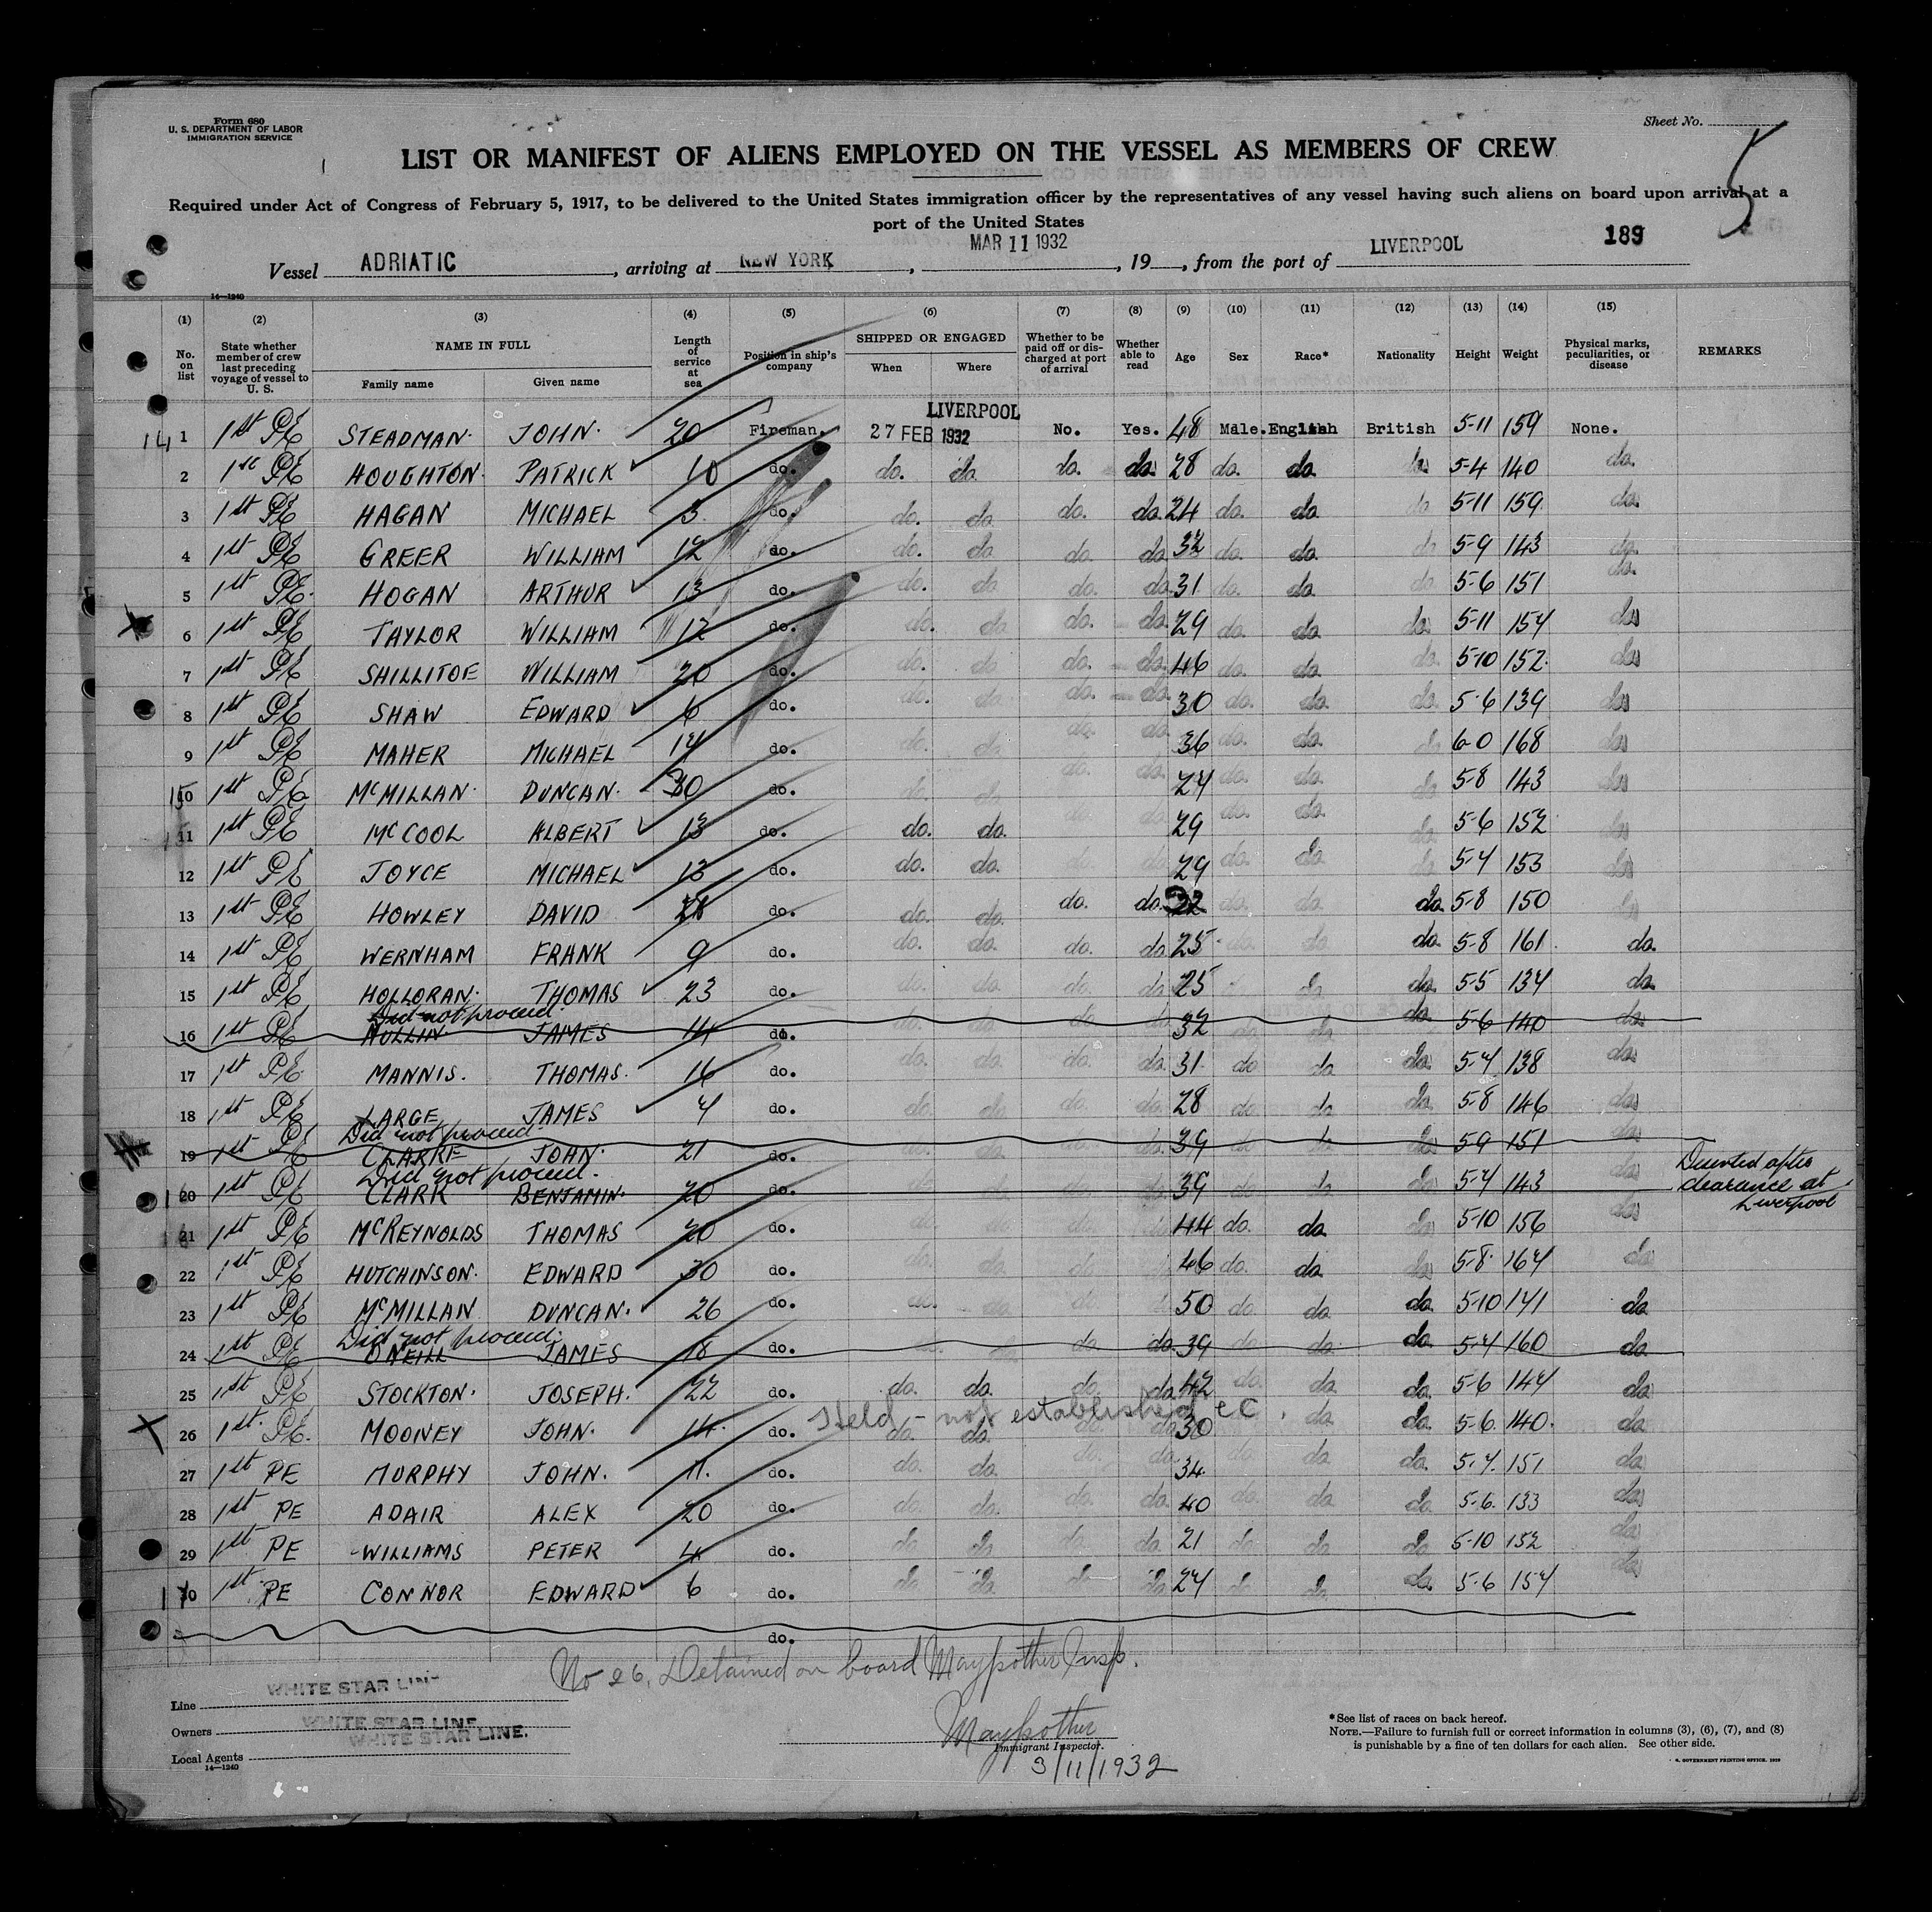 Form 680
U. S. DEPARTMENT OF LABOR
IMMIGRATION SERVICE
Sheet No.
5
LIST OR MANIFEST OF ALIENS EMPLOYED ON THE VESSEL AS MEMBERS OF CREW
Required under Act of Congress of February 5, 1917, to be delivered to the United States immigration officer by the representatives of any vessel having such aliens on board upon arrival at a
port of the United States
189
Vessel ADRIATIC, arriving at NEW YORK, MAR 11 1932, 19, from the port of LIVERPOOL
14—1240
(1) (2) (3) (4) (5) (6) (7) (8) (9) (10) (11) (12) (13) (14) (15)
No. on list | State whether member of crew last preceding voyage of vessel to U. S. | NAME IN FULL | Family name | Given name | Length of service at sea | Position in ship's company | SHIPPED OR ENGAGED | When | Where | Whether to be paid off or discharged at port of arrival | Whether able to read | Age | Sex | Race* | Nationality | Height | Weight | Physical marks, peculiarities, or disease | REMARKS
1 1st PE STEADMAN. JOHN. 20 Fireman. 27 FEB 1932 LIVERPOOL No. Yes. 48 Male. English British 5-11 159 None.
2 1st PE HOUGHTON. PATRICK 10 do. do. do. do. do. 28 do. do. do. 5-4 140 do.
3 1st PE HAGAN MICHAEL 3 do. do. do. do. do. 24 do. do. do. 5-11 159 do.
4 1st PE GREER WILLIAM 12 do. do. do. do. do. 32 do. do. do. 5-9 143 do.
5 1st PE. HOGAN ARTHUR 13 do. do. do. do. do. 31 do. do. do. 5-6 151 do.
6 1st PE TAYLOR WILLIAM 12 do. do. do. do. do. 29 do. do. do. 5-11 154 do.
7 1st PE SHILLITOE WILLIAM 20 do. do. do. do. do. 46 do. do. do. 5-10 152. do.
8 1st PE SHAW EDWARD 6 do. do. do. do. do. 30 do. do. do. 5-6 139 do.
9 1st PE MAHER MICHAEL 14 do. do. do. do. do. 36 do. do. do. 6-0 168 do.
10 1st PE McMILLAN. DUNCAN. do. do. do. do. do. 24 do. do. do. 5-8 143 do.
11 1st PE McCOOL ALBERT 13 do. do. do. do. do. 29 do. do. do. 5-6 152 do.
12 1st PE JOYCE MICHAEL 13 do. do. do. do. do. 29 do. do. do. 5-4 153 do.
13 1st PE HOWLEY DAVID do. do. do. do. do. do. do. do. 5-8 150 do.
14 1st PE WERNHAM FRANK 9 do. do. do. do. do. 25 do. do. do. 5-8 161. do.
15 1st PE HOLLORAN. THOMAS 23 do. do. do. do. do. 25 do. do. 5-5 134 do.
Did not proceed.
16 1st PE NULLIN JAMES 14 do. do. do. do. do. 32 do. do. do. 5-6 140 do.
17 1st PE MANNIS. THOMAS. 16 do. do. do. do. do. 31 do do do. 5-4 138 do.
18 1st PE LARGE JAMES 4 do. do. do. do. do. 28 do do do. 5-8 146 do.
Did not proceed.
19 1st PE CLARKE JOHN. 21 do. do. do. do. 39 do do do. 5-9 151 do.
Did not proceed.
20 1st PE CLARK BENJAMIN. 20 do. do. do. do. do. 39 do do do. 5-4 143 do. Deserted after clearance at Liverpool
21 1st PE McREYNOLDS THOMAS 20 do. do. do. do. do. 44 do. do. do. 5-10 156 do.
22 1st PE HUTCHINSON. EDWARD 30 do. do. do. do. 46 do. do. do. 5-8 164 do
23 1st PE McMILLAN DUNCAN. 26 do. do. do. do. do. 50 do do. do. 5-10 141 do
Did not proceed.
24 1st PE O'NEILL JAMES 18 do. do. do. do. do. 39 do do. do. 5-4 160 do
25 1st PE STOCKTON. JOSEPH. 22 do. do. do. do. do. 42 do. do. do. 5-6 144 do.
Held - not established EC.
26 1st. PE. MOONEY JOHN. 14. do. do. do. do. do. 30 do. do. 5-6 140. do
27 1st PE MURPHY JOHN. 11. do. do. do. do. do. 34 do. do. do. 5-4. 151 do.
28 1st PE ADAIR ALEX 20 do. do. do. do. do. 40 do. do. do. 5-6. 133 do.
29 1st PE WILLIAMS PETER 4 do. do. do. do. do. 21 do. do. do. 5-10 152 do.
30 1st PE CONNOR EDWARD 6 do. do. do. do. do. 24 do do. do. 5-6 154 do.
do.
No 26, Detained on board Maypother Insp.
Line WHITE STAR LINE
Owners WHITE STAR LINE
Local Agents WHITE STAR LINE.
14—1240
Maypother
Immigrant Inspector.
3/11/1932
*See list of races on back hereof.
NOTE.—Failure to furnish full or correct information in columns (3), (6), (7), and (8)
is punishable by a fine of ten dollars for each alien. See other side.